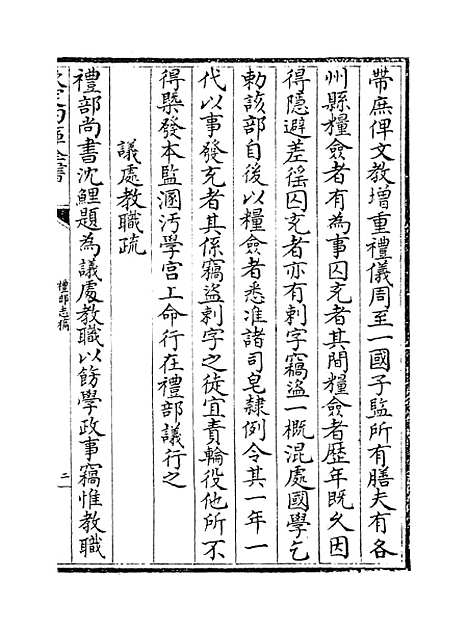 帶庶俾文教增重禮儀周至一國子監所有膳夫有各
州縣糧僉者有為事囚充者其間糧僉者歴年既久因
得隱避差徭囚充者亦有刺字竊盜一概混處國學乞
勅該部自後以糧僉者悉准諸司皂隷例令其一年一
代以事發充者其係竊盜刺字之徒宜責輪役他所不
得槩發本監溷汚學宫上命行在禮部議行之
議處教職疏
禮部尚書沈鯉題為議處教職以飭學政事竊惟教職
禮部志稿
二